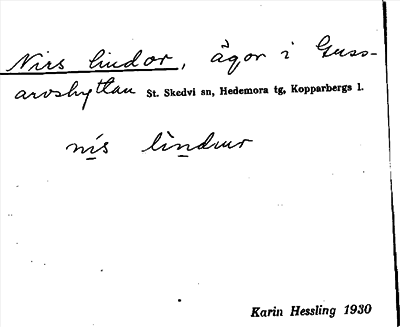 Nirs lindor, ägor i Guss-
arvshyttan St. Skedvi sn, Hedemora tg, Kopparbergs l.
nis lìndwr
Karin Hessling 1930